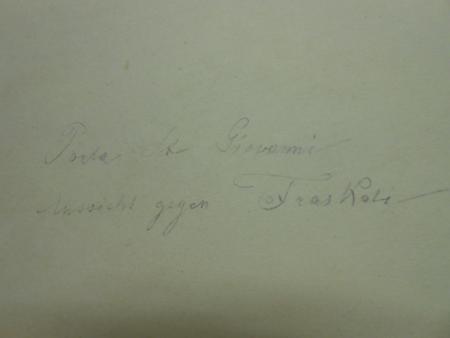 Porta St Giovanni
Aussicht gegen Fraskati